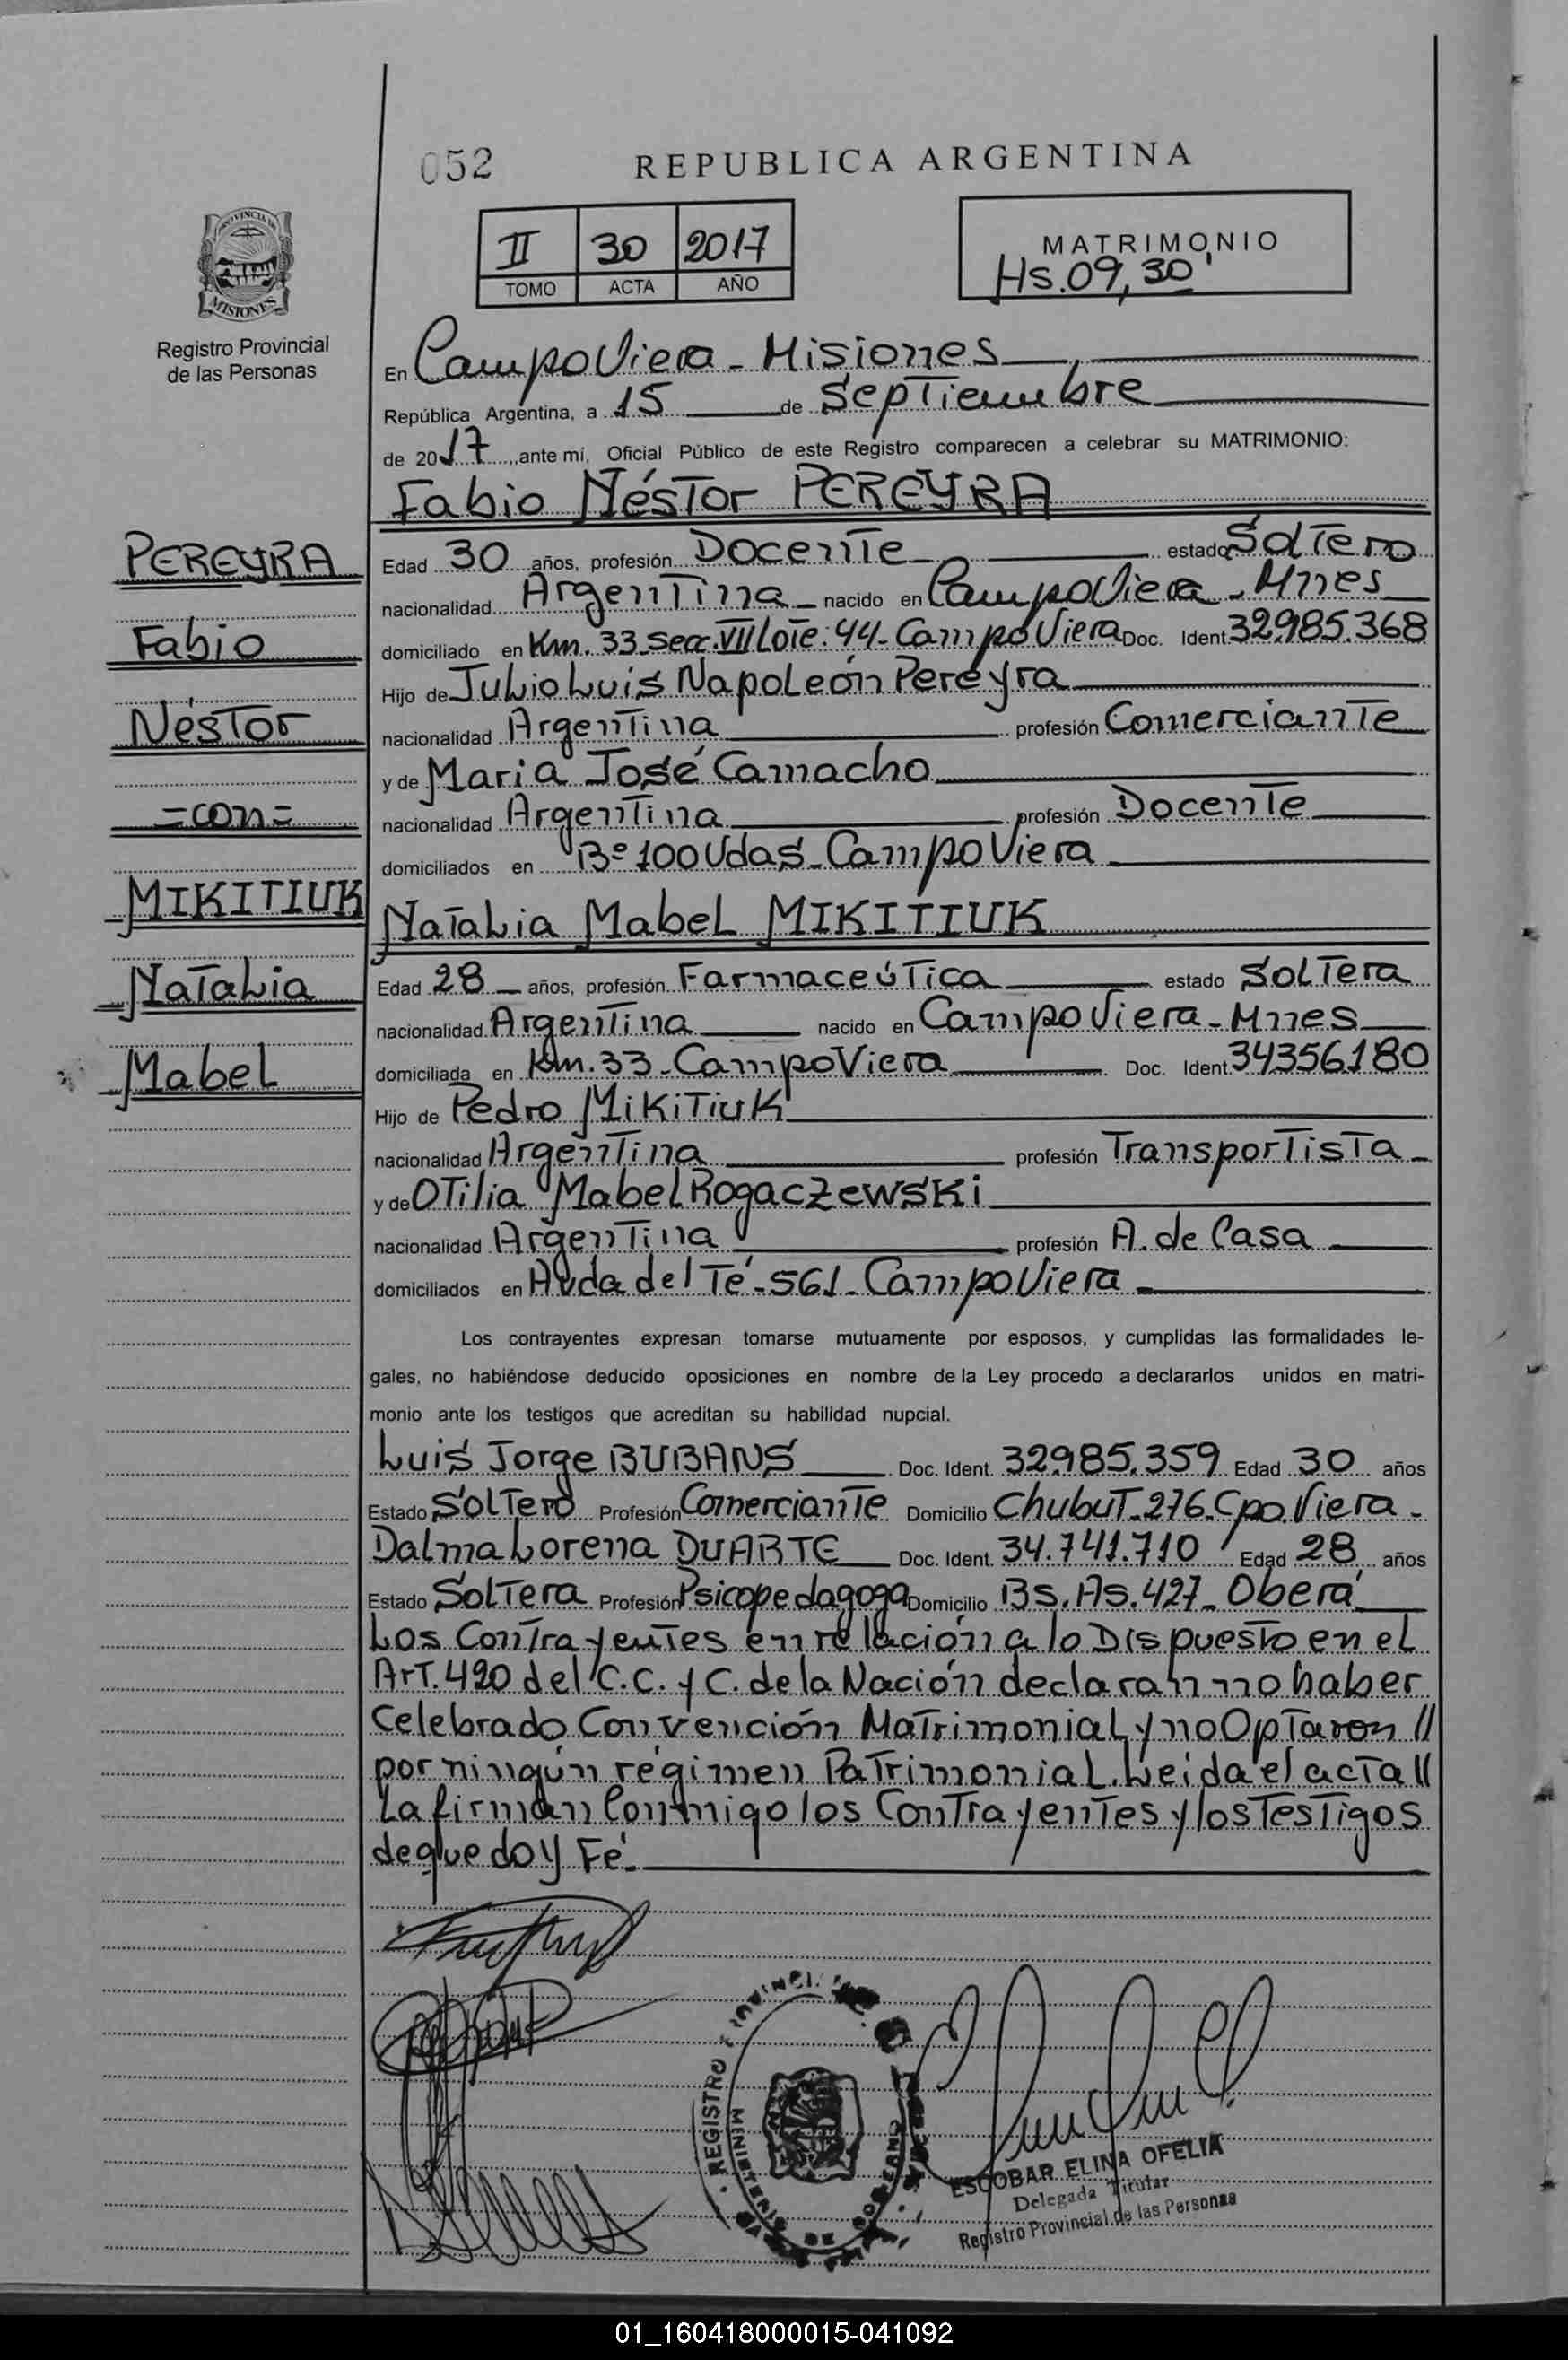 052
REPUBLICA ARGENTINA
II 30 2017
TOMO ACTA AÑO
MATRIMONIO
Hs. 09,30'
PROVINCIA DE
MISIONES
Registro Provincial
de las Personas
En Campo Viera - Misiones
República Argentina, a 15 de Septiembre
de 2017, ante mí, Oficial Público de este Registro comparecen a celebrar su MATRIMONIO:
Fabio Néstor PEREYRA
Edad 30 años, profesión Docente estado Soltero
nacionalidad Argentina nacido en Campo Viera - Mnes
domiciliado en Km. 33 Secc. VII Lote: 44 - Campo Viera Doc. Ident. 32.985.368
Hijo de Julio Luis Napoleón Pereyra
nacionalidad Argentina profesión Comerciante
y de María José Camacho
nacionalidad Argentina profesión Docente
domiciliados en Bº 100 Vdas - Campo Viera
Natalia Mabel MIKITIUK
Edad 28 años, profesión Farmaceútica estado Soltera
nacionalidad Argentina nacido en Campo Viera - Mnes
domiciliada en Km. 33 - Campo Viera Doc. Ident. 34356180
Hijo de Pedro Mikitiuk
nacionalidad Argentina profesión Transportista
y de Otilia Mabel Rogaczewski
nacionalidad Argentina profesión A. de Casa
domiciliados en Avda del Té - 561 - Campo Viera
PEREYRA
Fabio
Néstor
=con=
MIKITIUK
Natalia
Mabel
Los contrayentes expresan tomarse mutuamente por esposos, y cumplidas las formalidades le-
gales, no habiéndose deducido oposiciones en nombre de la Ley procedo a declararlos unidos en matri-
monio ante los testigos que acreditan su habilidad nupcial.
Luis Jorge BUBANS Doc. Ident. 32.985.359 Edad 30 años
Estado Soltero Profesión Comerciante Domicilio Chubut - 276 - Cpo. Viera -
Dalma Lorena DUARTE Doc. Ident. 34.741.710 Edad 28 años
Estado Soltera Profesión Psicopedagoga Domicilio Bs. As. 427 - Oberá
Los Contrayentes en relación a lo Dispuesto en el
Art. 420 del C.C. y C. de la Nación declaran no haber
Celebrado Convención Matrimonial y no Optaron //
por ningún régimen Patrimonial. Leida el acta //
La firman Conmigo los Contrayentes y los Testigos
de que doy Fé.
REGISTRO PROVINCIAL
MINISTERIO DE GOBIERNO
ESCOBAR ELINA OFELIA
Delegada Titular
Registro Provincial de las Personas
01_160418000015-041092